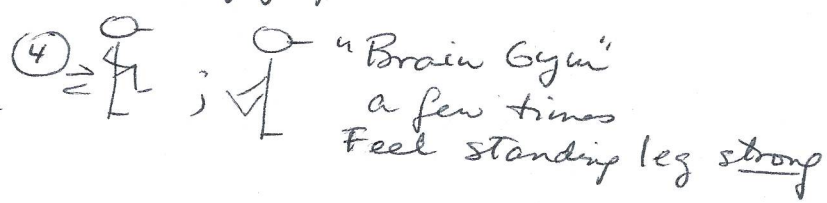 ④ ; "Brain Gym"
a few times
Feel standing leg strong